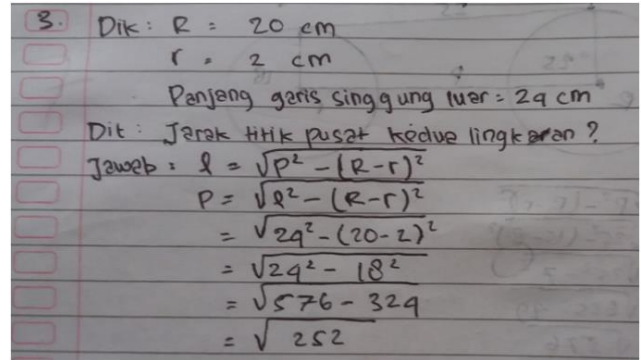 3. Dik : R = 20 cm
r = 2 cm
Panjang garis singgung luar = 24 cm
Dit : Jarak titik pusat kedua lingkaran ?
Jawab : l = √P² - (R-r)²
P = √l² - (R-r)²
= √24² - (20-2)²
= √24² - 18²
= √576 - 324
= √252